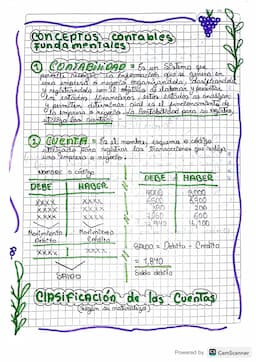 Conceptos contables
fundamentales
① CONTABILIDAD = Es un Sistema que
permite recoger la información que se genera en
una empresa o negocio organizandola, clasificandola
y registrandola con el objetivo de elaborar y presentar
los estados financieros, estos estados se analizan
y permiten determinar cual es el funcionamiento de
la empresa o negocio. La contabilidad para su registro,
utiliza las cuentas
② CUENTA = Es el nombre, esquema o código
utilizado para registrar las transacciones que realiza
una empresa o negocio.
NOMBRE o código
DEBE HABER
DEBE HABER
xxxx xxxx
xxxx xxxx
xxxx xxxx
Movimiento Movimiento
Débito Crédito
xxxx
SALDO
SALDO = Débito - Credito
= 1.840
Saldo débito
Clasificación de las Cuentas
(según su naturaleza)
Powered by CamScanner